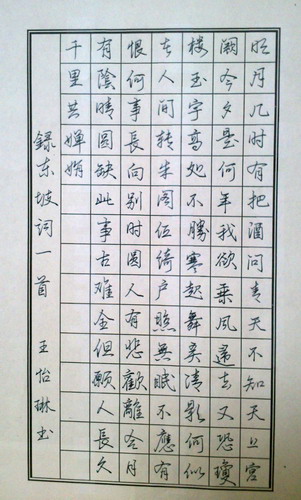 明月几时有把酒问青天不知天上宫
阙今夕是何年我欲乘风歸去又恐瓊
楼玉宇高处不勝寒起舞弄清影何似
在人间转朱阁低绮户照無眠不應有
恨何事長向别时圆人有悲歡離合月
有陰晴圆缺此事古难全但願人長久
千里共婵娟
録东坡词一首 王怡琳书